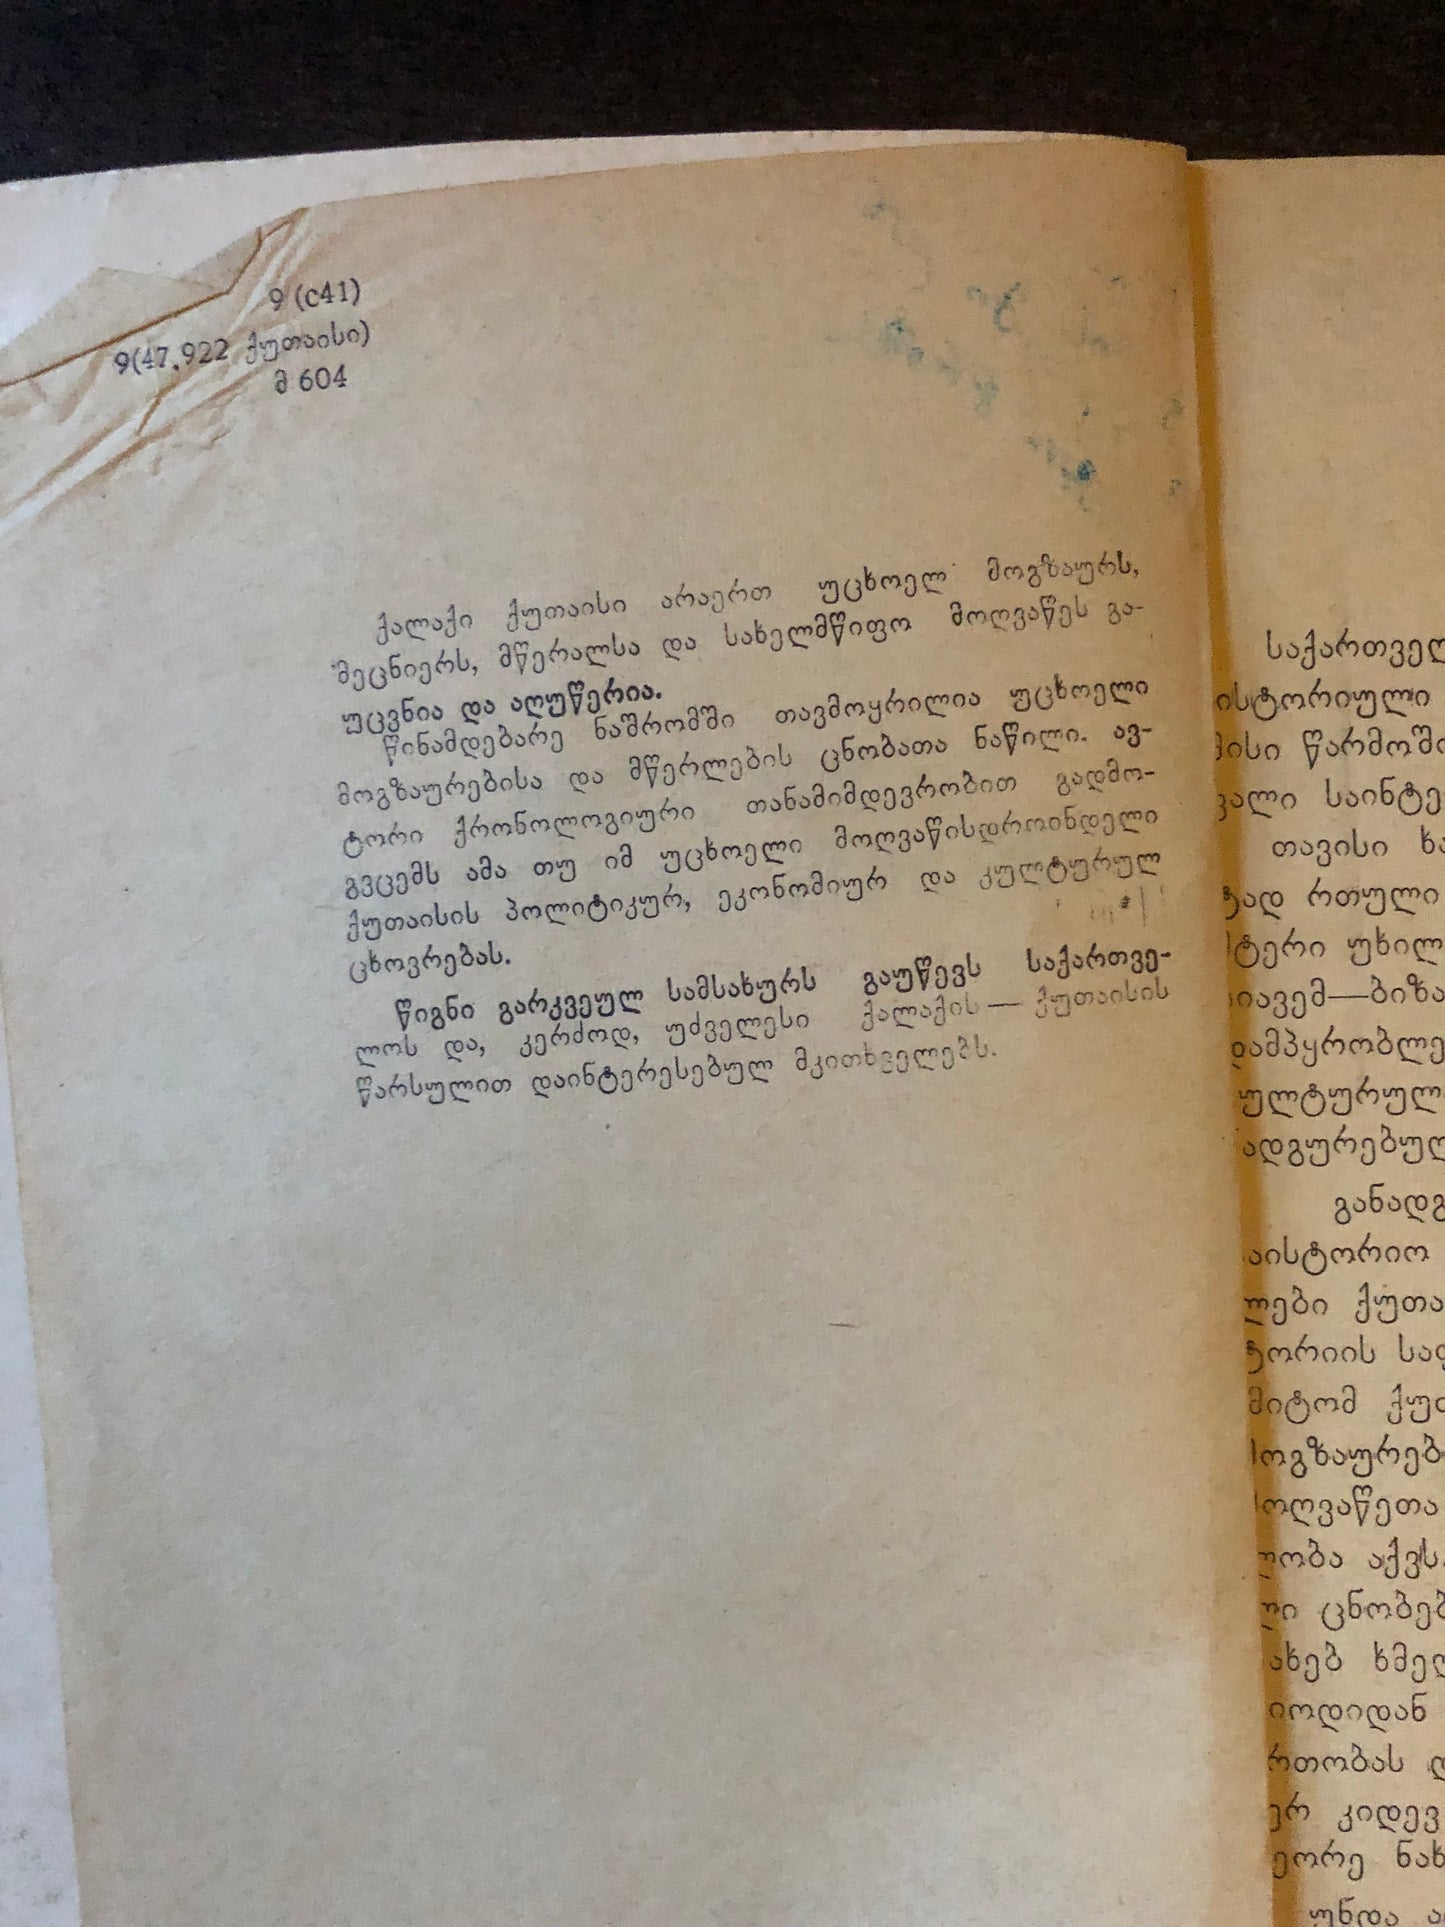 9 (c41)
9(47.922 ქუთაისი)
მ 604
ქალაქი ქუთაისი არაერთ უცხოელ მოგზაურს,
მეცნიერს, მწერალსა და სახელმწიფო მოღვაწეს გა-
უცვნია და აღუწერია.
წინამდებარე ნაშრომში თავმოყრილია უცხოელი
მოგზაურებისა და მწერლების ცნობათა ნაწილი. ავ-
ტორი ქრონოლოგიური თანამიმდევრობით გადმო-
გვცემს ამა თუ იმ უცხოელი მოღვაწისდროინდელი
ქუთაისის პოლიტიკურ, ეკონომიურ და კულტურულ
ცხოვრებას.
წიგნი გარკვეულ სამსახურს გაუწევს საქართვე-
ლოს და, კერძოდ, უძველესი ქალაქის — ქუთაისის
წარსულით დაინტერესებულ მკითხველებს.
საქართველ
ისტორიული
წარმოში
საინტე
თავისი ხა
რთული
ტერი უხილ
იავემ—ბიზა
დამპყრობლე
ულტურულ
ადგურებულ
განადგ
აისტორიო
ლები ქუთა
ტორიის საც
მიტომ ქუთ
ოგზაურებ
ოღვაწეთა
ობა აქვს.
ი ცნობებ
ახებ ხმელ
იოდიდან
რთობას დ
ერ კიდევ
ეორე ნახ
უნდა ა